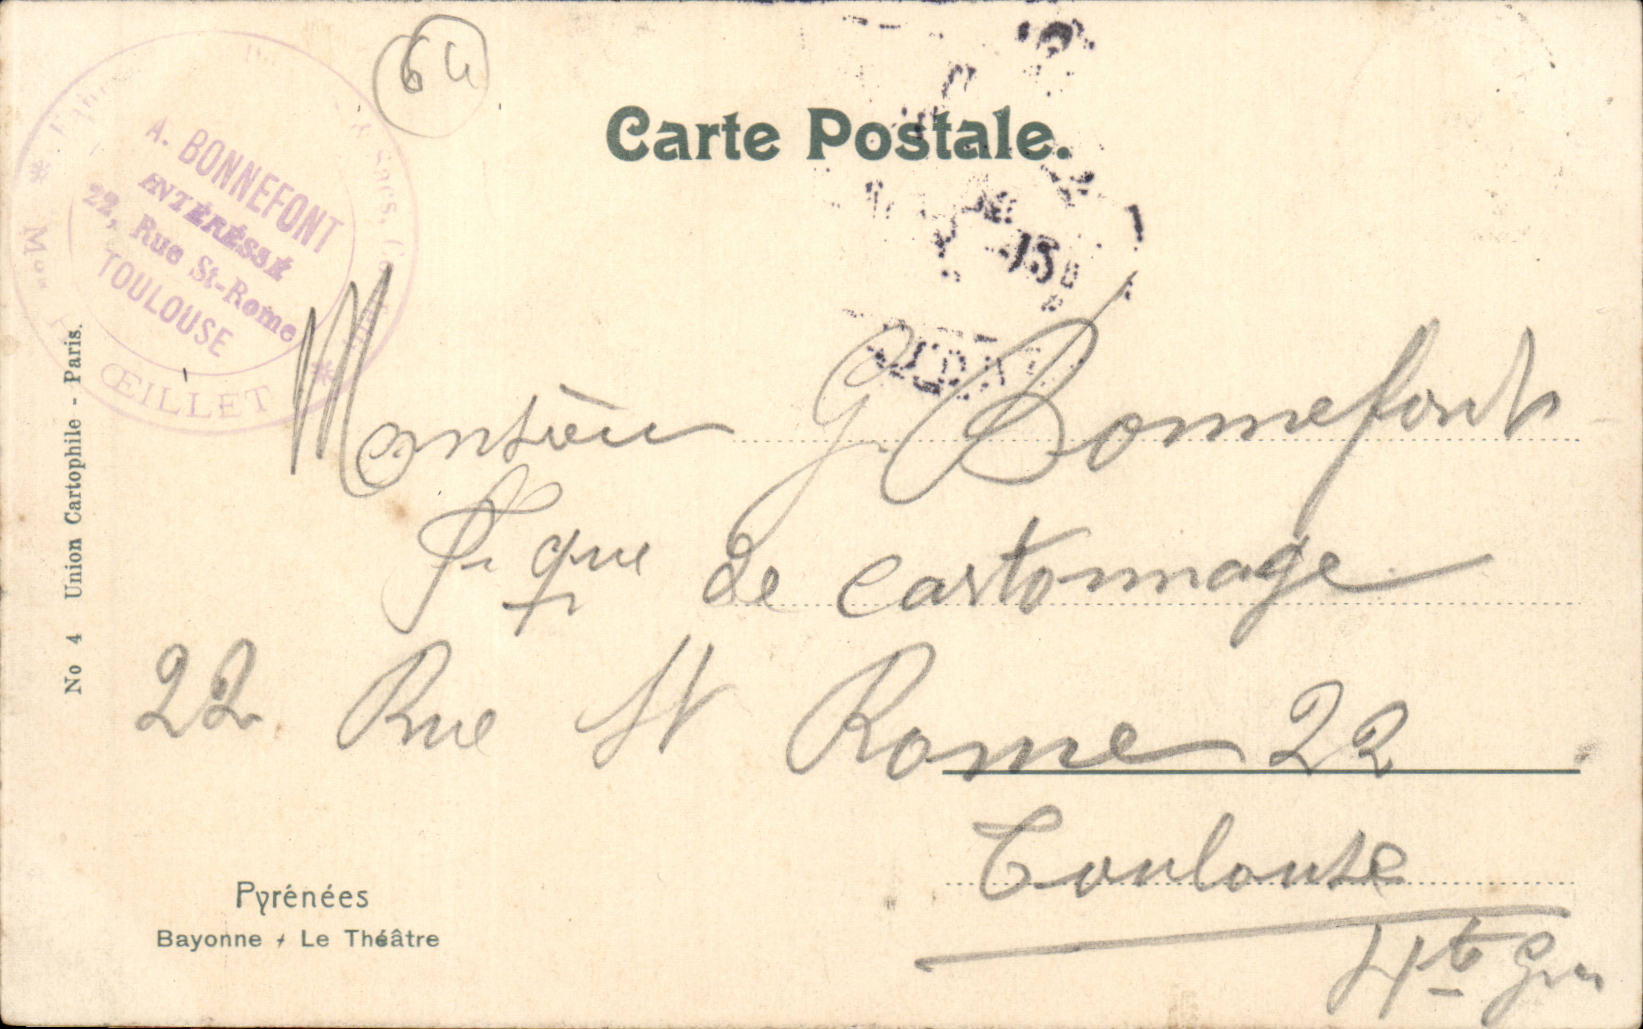 64
Carte Postale.
A. BONNEFONT
INTÉRESSÉ
22, Rue St-Rome
TOULOUSE
ŒILLET
15
Monsieur G. Bonnefont
Fque de cartonnage
22 Rue St Rome 22
Toulouse
Hte Gne
No 4 Union Cartophile - Paris.
Pyrénées
Bayonne - Le Théâtre